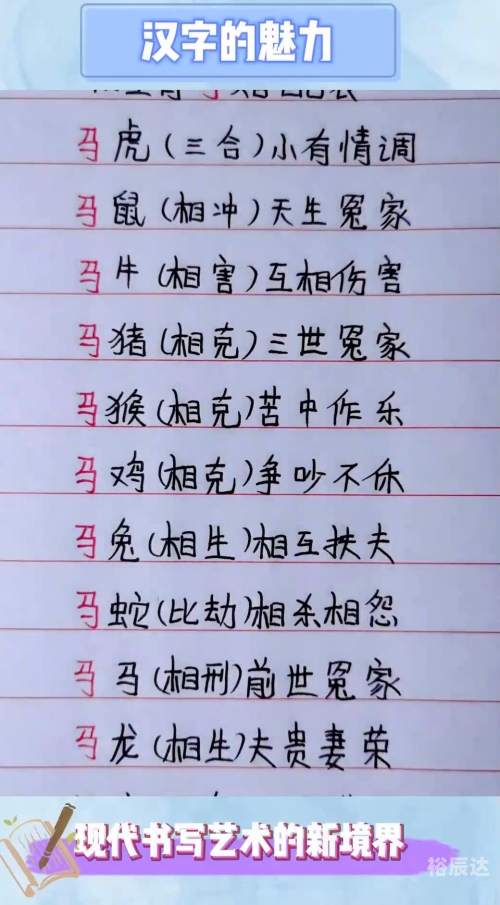 汉字的魅力
马虎(三合)小有情调
马鼠(相冲)天生冤家
马牛(相害)互相伤害
马猪(相克)三世冤家
马猴(相克)苦中作乐
马鸡(相克)争吵不休
马兔(相生)相互扶夫
马蛇(比劫)相杀相怨
马马(相刑)前世冤家
马龙(相生)夫贵妻荣
现代书写艺术的新境界
裕辰达